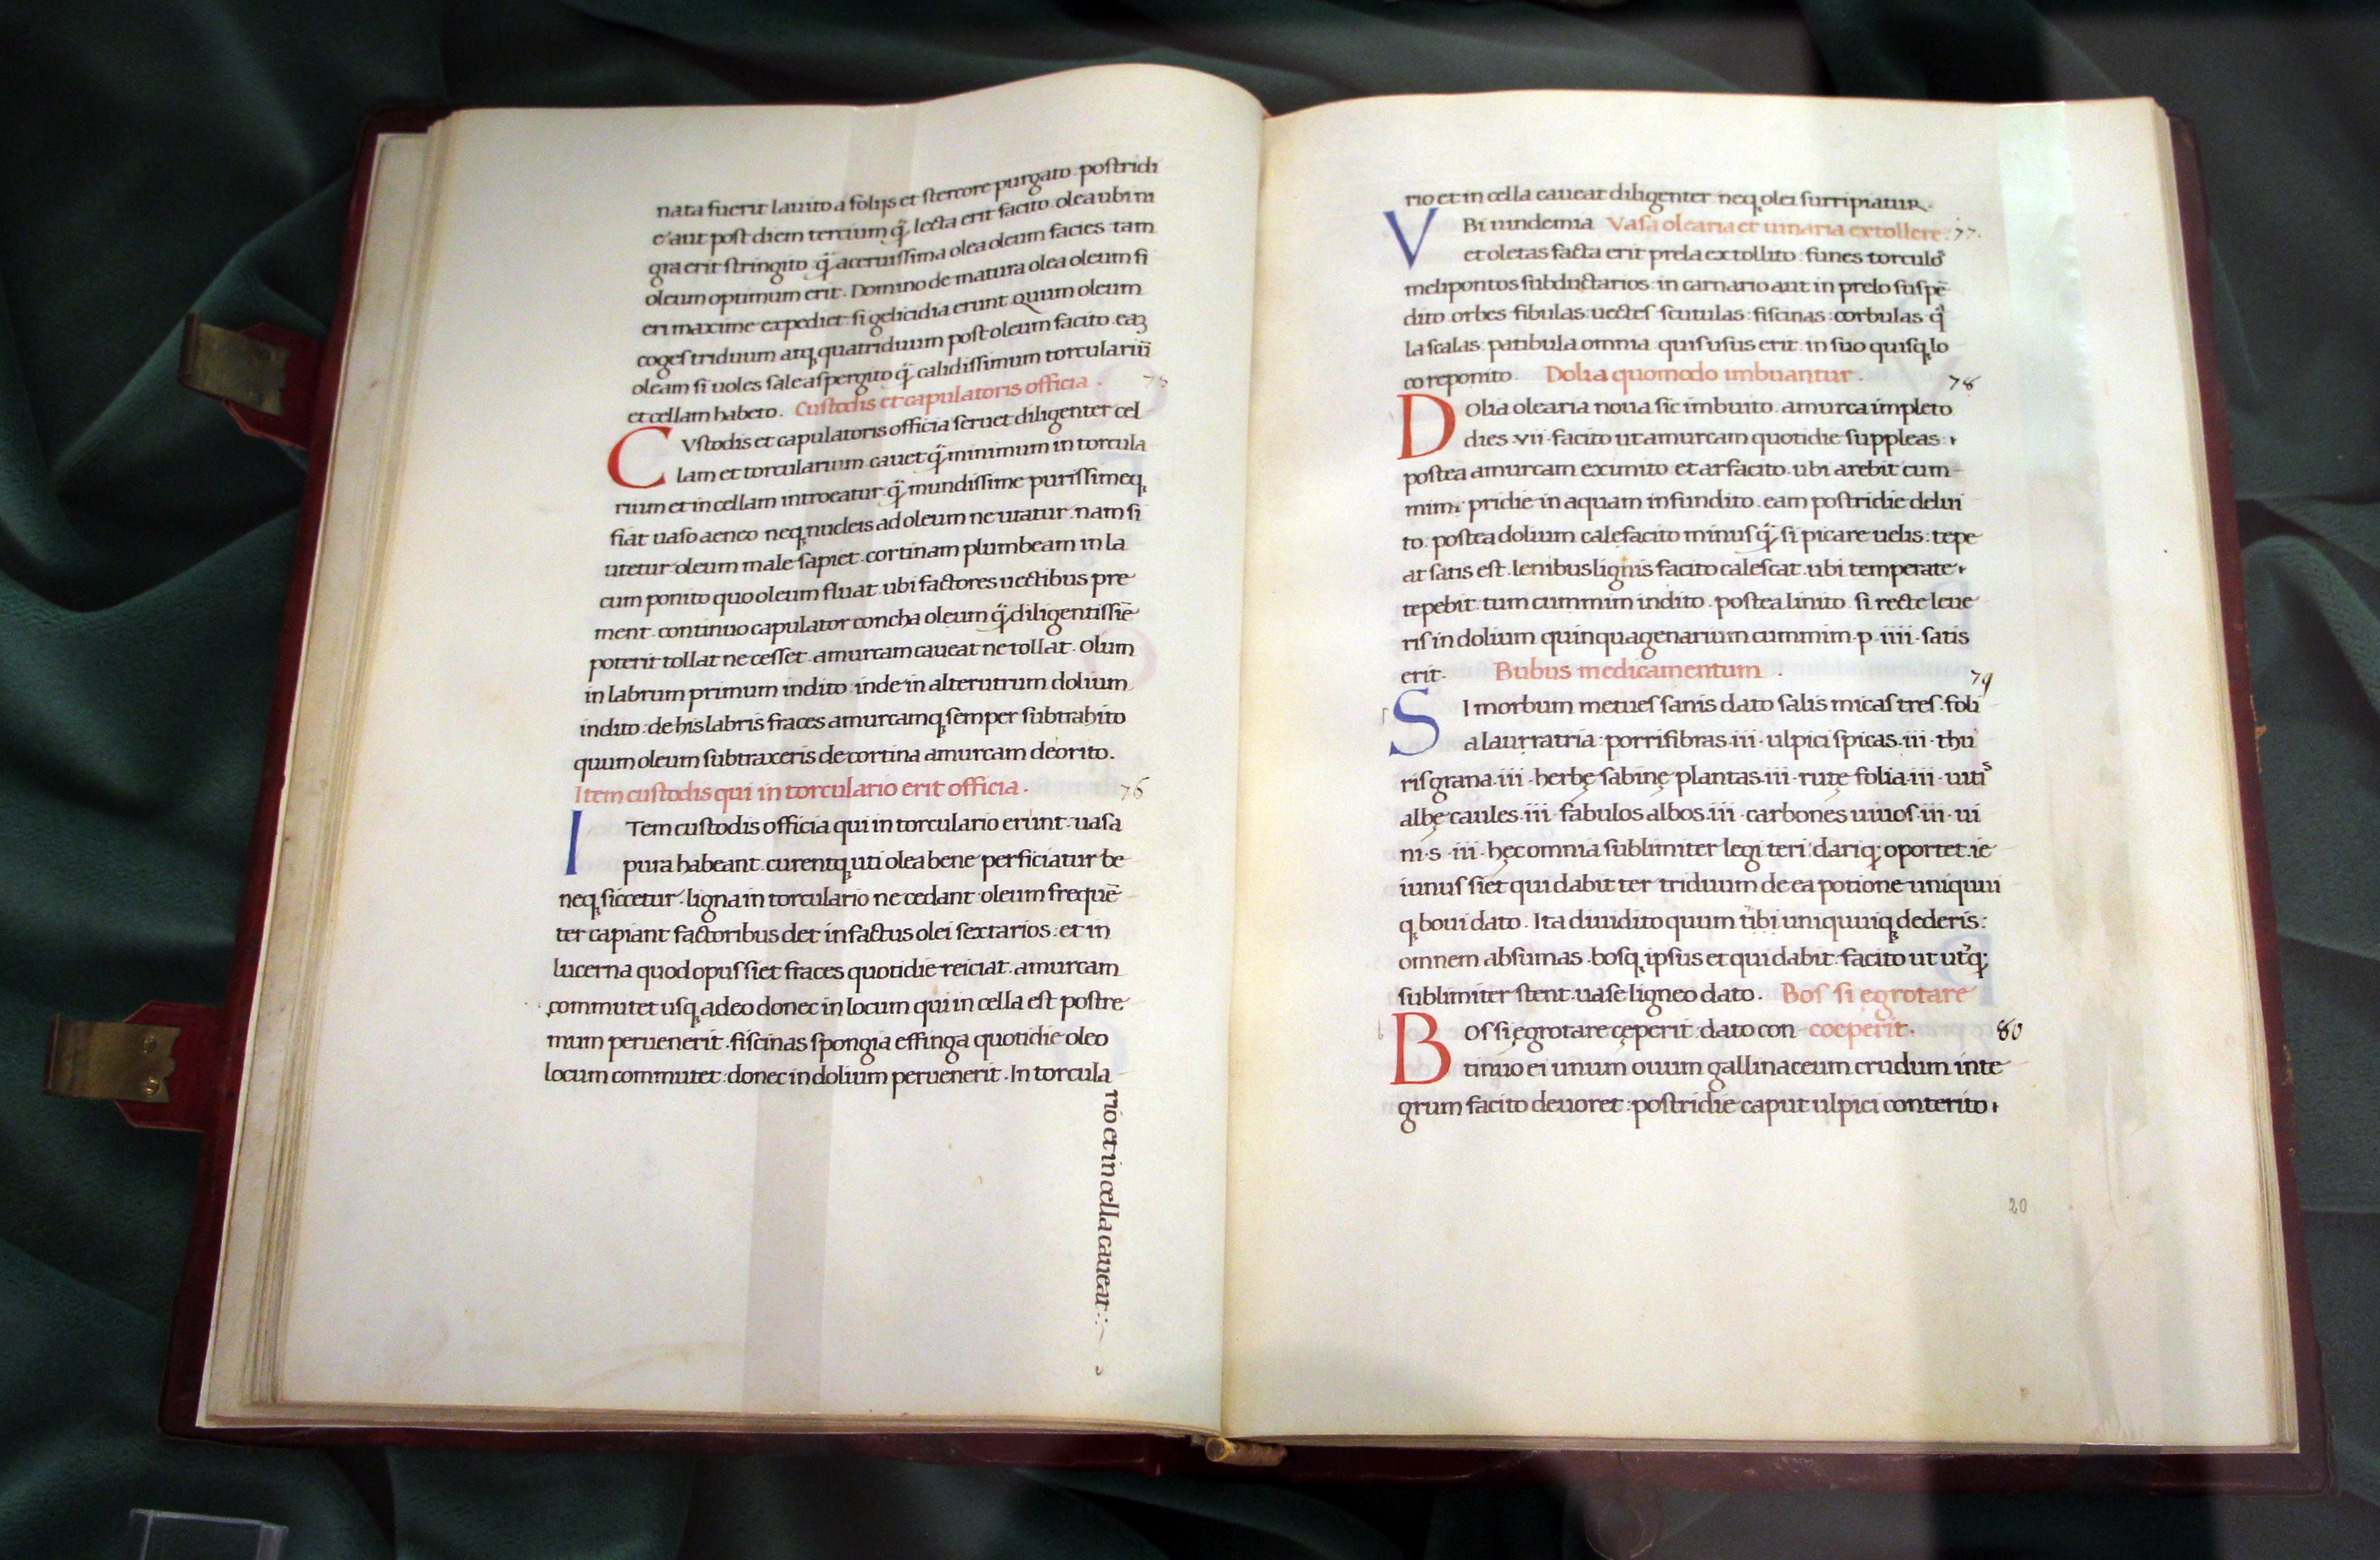 nata fuerit lauito a folijs et stercore purgato · postridi
e aut post diem tertium q̃ lecta erit facito · olea ubi ni
gra erit stringito · q̃ aceruissima olea oleum facies · tam
oleum optimum erit · Domino de matura olea oleum fi
eri maxime expediet · si gelicidia erunt quum oleum
coges triduum atq̨ quatriduum post oleum facito · eaꝫ
oleam si uoles sale aspergito q̃ calidissimum torculariũ
et cellam habeto . Custodis et capulatoris officia .
CVstodis et capulatoris officia seruet diligenter cel
lam et torcularium · cauet q̃ minimum in torcula
rium et in cellam introeatur · q̃ mundissime purissimeq̨
fiat uaso aeneo neq̨ nucleis ad oleum ne utatur · nam si
utetur oleum male sapiet · cortinam plumbeam in la
cum ponito quo oleum fluat · ubi factores uectibus pre
ment · continuo capulator concha oleum q̃ diligentissiē
poterit tollat ne cesset · amurcam caueat ne tollat · Olum
in labrum primum indito · inde in alterutrum dolium
indito · de his labris fraces amurcamq̨ semper subtrahito
quum oleum subtraxeris de cortina amurcam deorito .
Item custodis qui in torculario erit officia . 76
ITem custodis officia qui in torculario erunt · uasa
pura habeant · curentq̨ uti olea bene perficiatur be
neq̨ siccetur · ligna in torculario ne cedant · oleum frequē
ter capiant factoribus det in factus olei sextarios : et in
lucerna quod opus siet fraces quotidie reiciat · amurcam
commutet usq̨ adeo donec in locum qui in cella est postre
mum peruenerit · fiscinas spongia effinga quotidie oleo
locum commutet : donec in dolium peruenerit · In torcula
rio et in cella caueat :
rio et in cella caueat diligenter neq̨ olei surripiatur .
VBi uindemia Vasa olearia et uinaria extollere . 77.
et oletas facta erit prela extollito · funes torculo
melipontos subductarios : in carnario aut in prelo suspē
dito · orbes · fibulas · uectes · scutulas : fiscinas : corbulas · q̃
la scalas · patibula omnia quis usus erit · in suo quisq̨ lo
co reponito . Dolia quomodo imbuantur . 78
DOlia olearia noua sic imbuito · amurca impleto
dies · vii · facito ut amurcam quotidie suppleas :
postea amurcam eximito et arfacito · ubi arebit cum-
mim · pridie in aquam infundito · eam postridie delui
to · postea dolium calefacito minus q̃ si picare uelis : tepe
at satis est · lenibus lignis facito calescat · ubi temperate
tepebit · tum cummim indito · postea linito · si recte leue
ris in dolium quinquagenarium cummim · p · iiii · satis
erit · Bubus medicamentum . 79
SI morbum metues sanis dato salis micas tres · foli
a laurratria : porri fibras · iii · ulpici spicas · iii · thu
ris grana · iii · herbę sabinę plantas · iii · rutę folia · iii · uitis
albę caules · iii · fabulos albos · iii · carbones uiuos · iii · ui
ni · s · iii · hęc omnia sublimiter legi teri dariq̨ oportet · ie
iunus siet qui dabit ter triduum de ea potione uniquui
q̨ boui dato . Ita diuidito quum tibi uniquuiq̨ dederis :
omnem absumas · bosq̨ ipsus et qui dabit · facito ut utq̨;
sublimiter stent · uase ligneo dato . Bos si egrotare
BOs si ęgrotare cęperit · dato con- coeperit . 80
tinuo ei unum ouum gallinaceum crudum inte
grum facito deuoret : postridie caput ulpici conterito
20